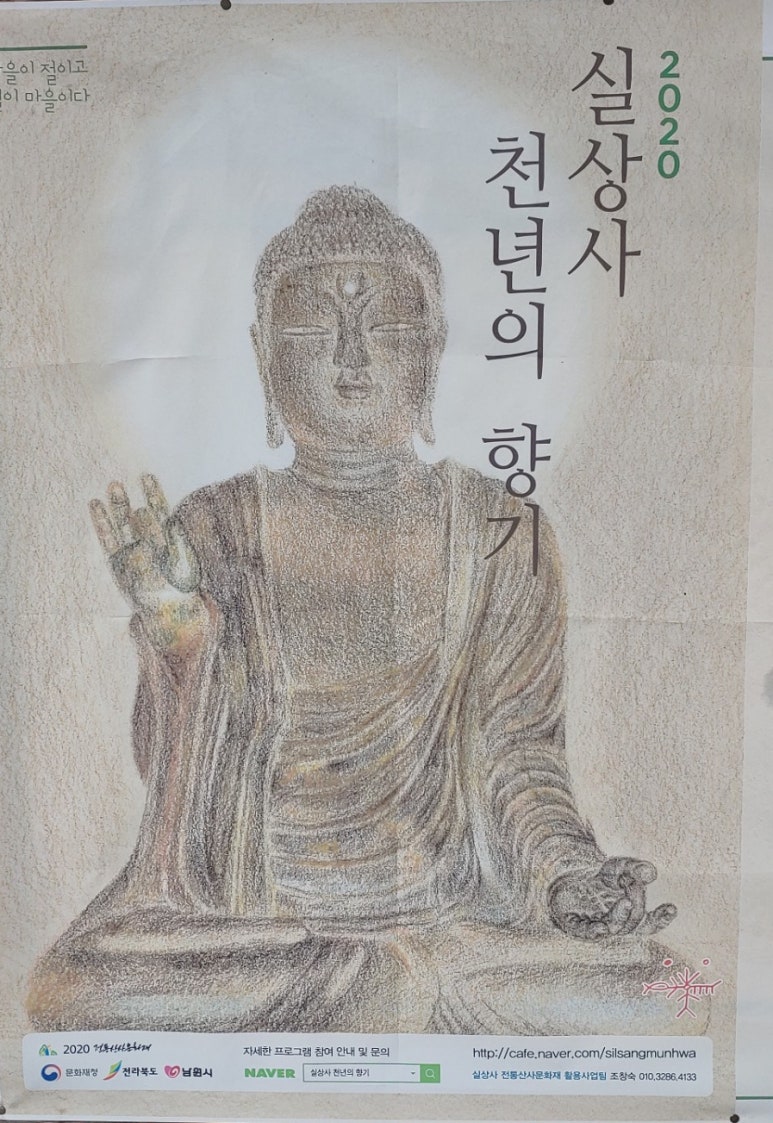 마을이 절이고
절이 마을이다
2020
실상사
천년의 향기
2020 전통산사문화재
문화재청 전라북도 남원시
자세한 프로그램 참여 안내 및 문의
NAVER 실상사 천년의 향기
http://cafe.naver.com/silsangmunhwa
실상사 전통산사문화재 활용사업팀 조창숙 010.3286.4133